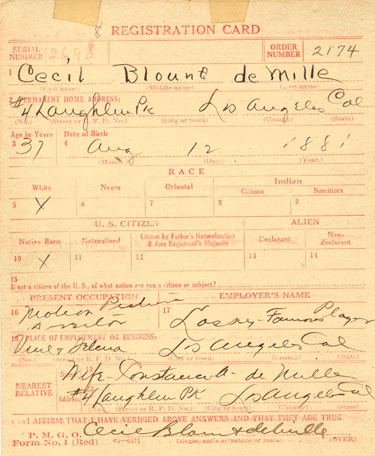 REGISTRATION CARD
SERIAL NUMBER 2698 ORDER NUMBER 2174
1 Cecil Blount de Mille
(First name) (Middle name) (Last name)
2 PERMANENT HOME ADDRESS:
#4 Laughlin Pk Los Angeles Cal
(No.) (Street or R. F. D. No.) (City or town) (County) (State)
Age in Years Date of Birth
3 37 4 Aug 12 1881
(Month.) (Day.) (Year.)
RACE
White Negro Oriental Indian
Citizen Noncitizen
5 X 6 7 8 9
U. S. CITIZEN ALIEN
Native Born Naturalized Citizen by Father's Naturalization Before Registrant's Majority Declarant Non-declarant
10 X 11 12 13 14
15
If not a citizen of the U. S., of what nation are you a citizen or subject?
PRESENT OCCUPATION EMPLOYER'S NAME
16 Motion Picture 17 Lasky-Famous Players
Director
18 PLACE OF EMPLOYMENT OR BUSINESS:
Vine & Selma Los Angeles Cal
(No.) (Street or R. F. D. No.) (City or town) (County) (State)
NEAREST RELATIVE
Name 19 Wife Constance A. de Mille
Address 20 #4 Laughlin Pk Los Angeles Cal
(No.) (Street or R. F. D. No.) (City or town) (County) (State)
I AFFIRM THAT I HAVE VERIFIED ABOVE ANSWERS AND THAT THEY ARE TRUE
P. M. G. O.
Form No. 1 (Red) Cecil Blount deMille
(Registrant's signature or mark) (OVER)